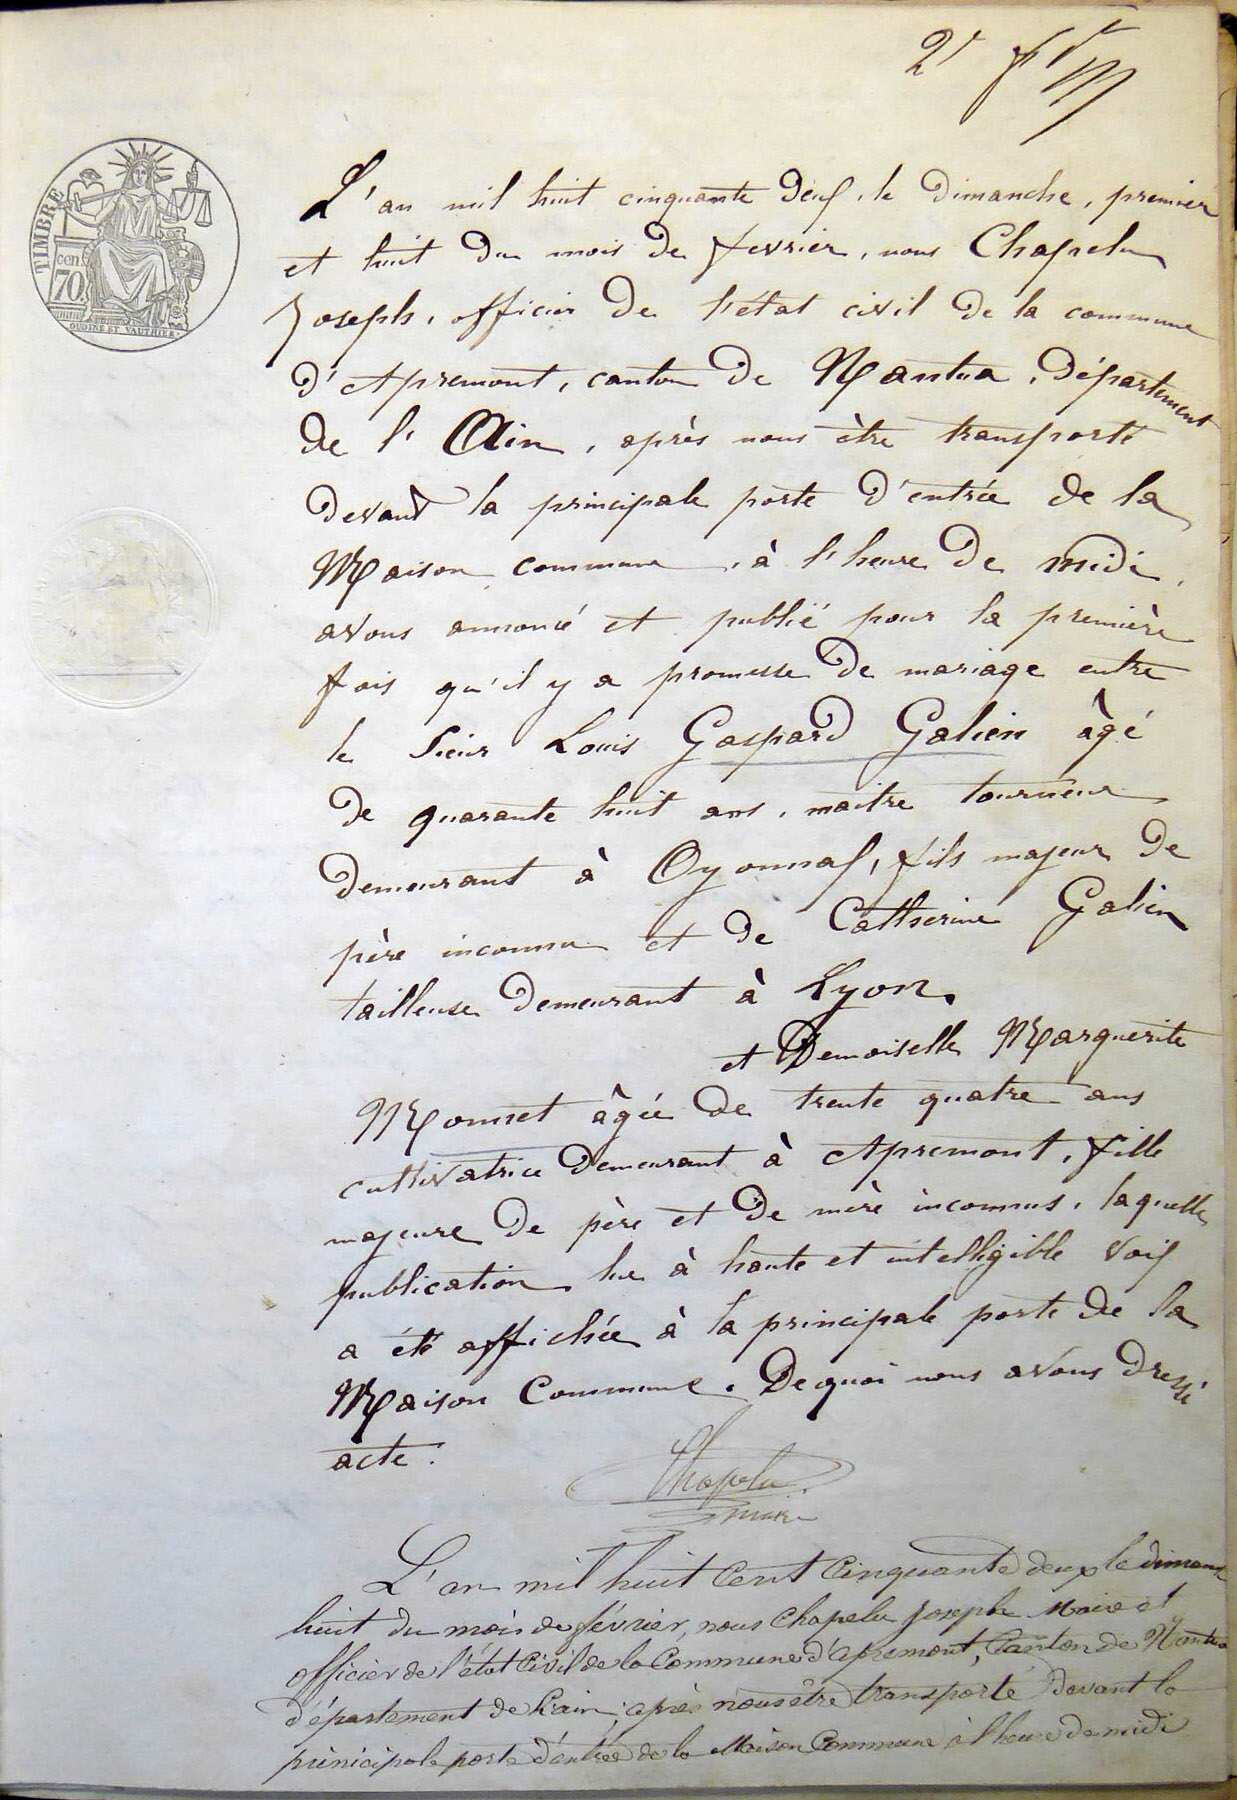 TIMBRE
70 cen.
OUDINE ET VAUTHIER
L'an mil huit cinquante deux, le Dimanche, premier
et huit du mois de fevrier, nous Chapelu
Joseph, officier de l'état civil de la commune
d'Apremont, canton de Nantua, département
de l'Ain, après nous être transporté
devant la principale porte d'entrée de la
Maison commune, à l'heure de midi,
avons annoncé et publié pour la première
fois qu'il y a promesse de mariage entre
le Sieur Louis Gaspard Galien âgé
de quarante huit ans, maitre tourneur
demeurant à Oyonnax, fils majeur de
père inconnu et de Catherine Galien
tailleuse demeurant à Lyon.
et Demoiselle Marguerite
Monnet âgée de trente quatre ans
cultivatrice demeurant à Apremont, fille
majeure de père et de mère inconnus, laquelle
publication lue à haute et intelligible voix
a été affichée à la principale porte de la
Maison Commune. De quoi nous avons dressé
acte.
Chapelu
maire
L'an mil huit Cent Cinquante deux le dimanche
huit du mois de février, nous Chapelu Joseph Maire et
officier de l'état Civil de la Commune d'apremont, Canton de Nantua
département de l'ain, après nous être transporté devant la
principale porte d'entrée de la Maison Commune à l'heure de midi